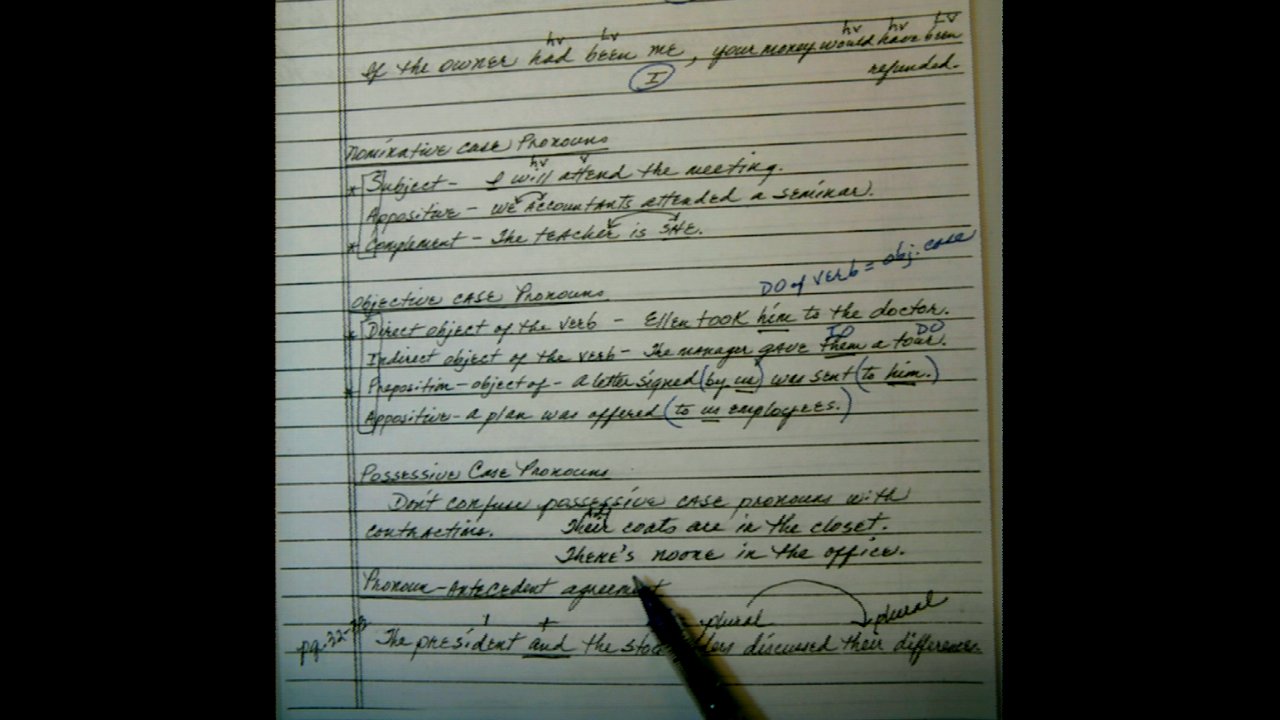 hv Lv hv hv Lv
If the owner had been me, your money would have been
I refunded.
Nominative case Pronouns
hv v
* Subject - I will attend the meeting.
Appositive - we accountants attended a seminar.
* Complement - The teacher is SHE.
DO of verb = obj. case
Objective case Pronouns
* Direct object of the verb - Ellen took him to the doctor.
IO DO
Indirect object of the verb - The manager gave them a tour.
* Preposition - object of - a letter signed (by us) was sent (to him.)
Appositive - a plan was offered (to us employees.)
Possessive Case Pronouns
Don't confuse possessive case pronouns with
contractions. Their coats are in the closet.
There's noone in the office.
Pronoun - Antecedent agreement
1 + plural plural
pg. 32- The president and the discussed their difference.